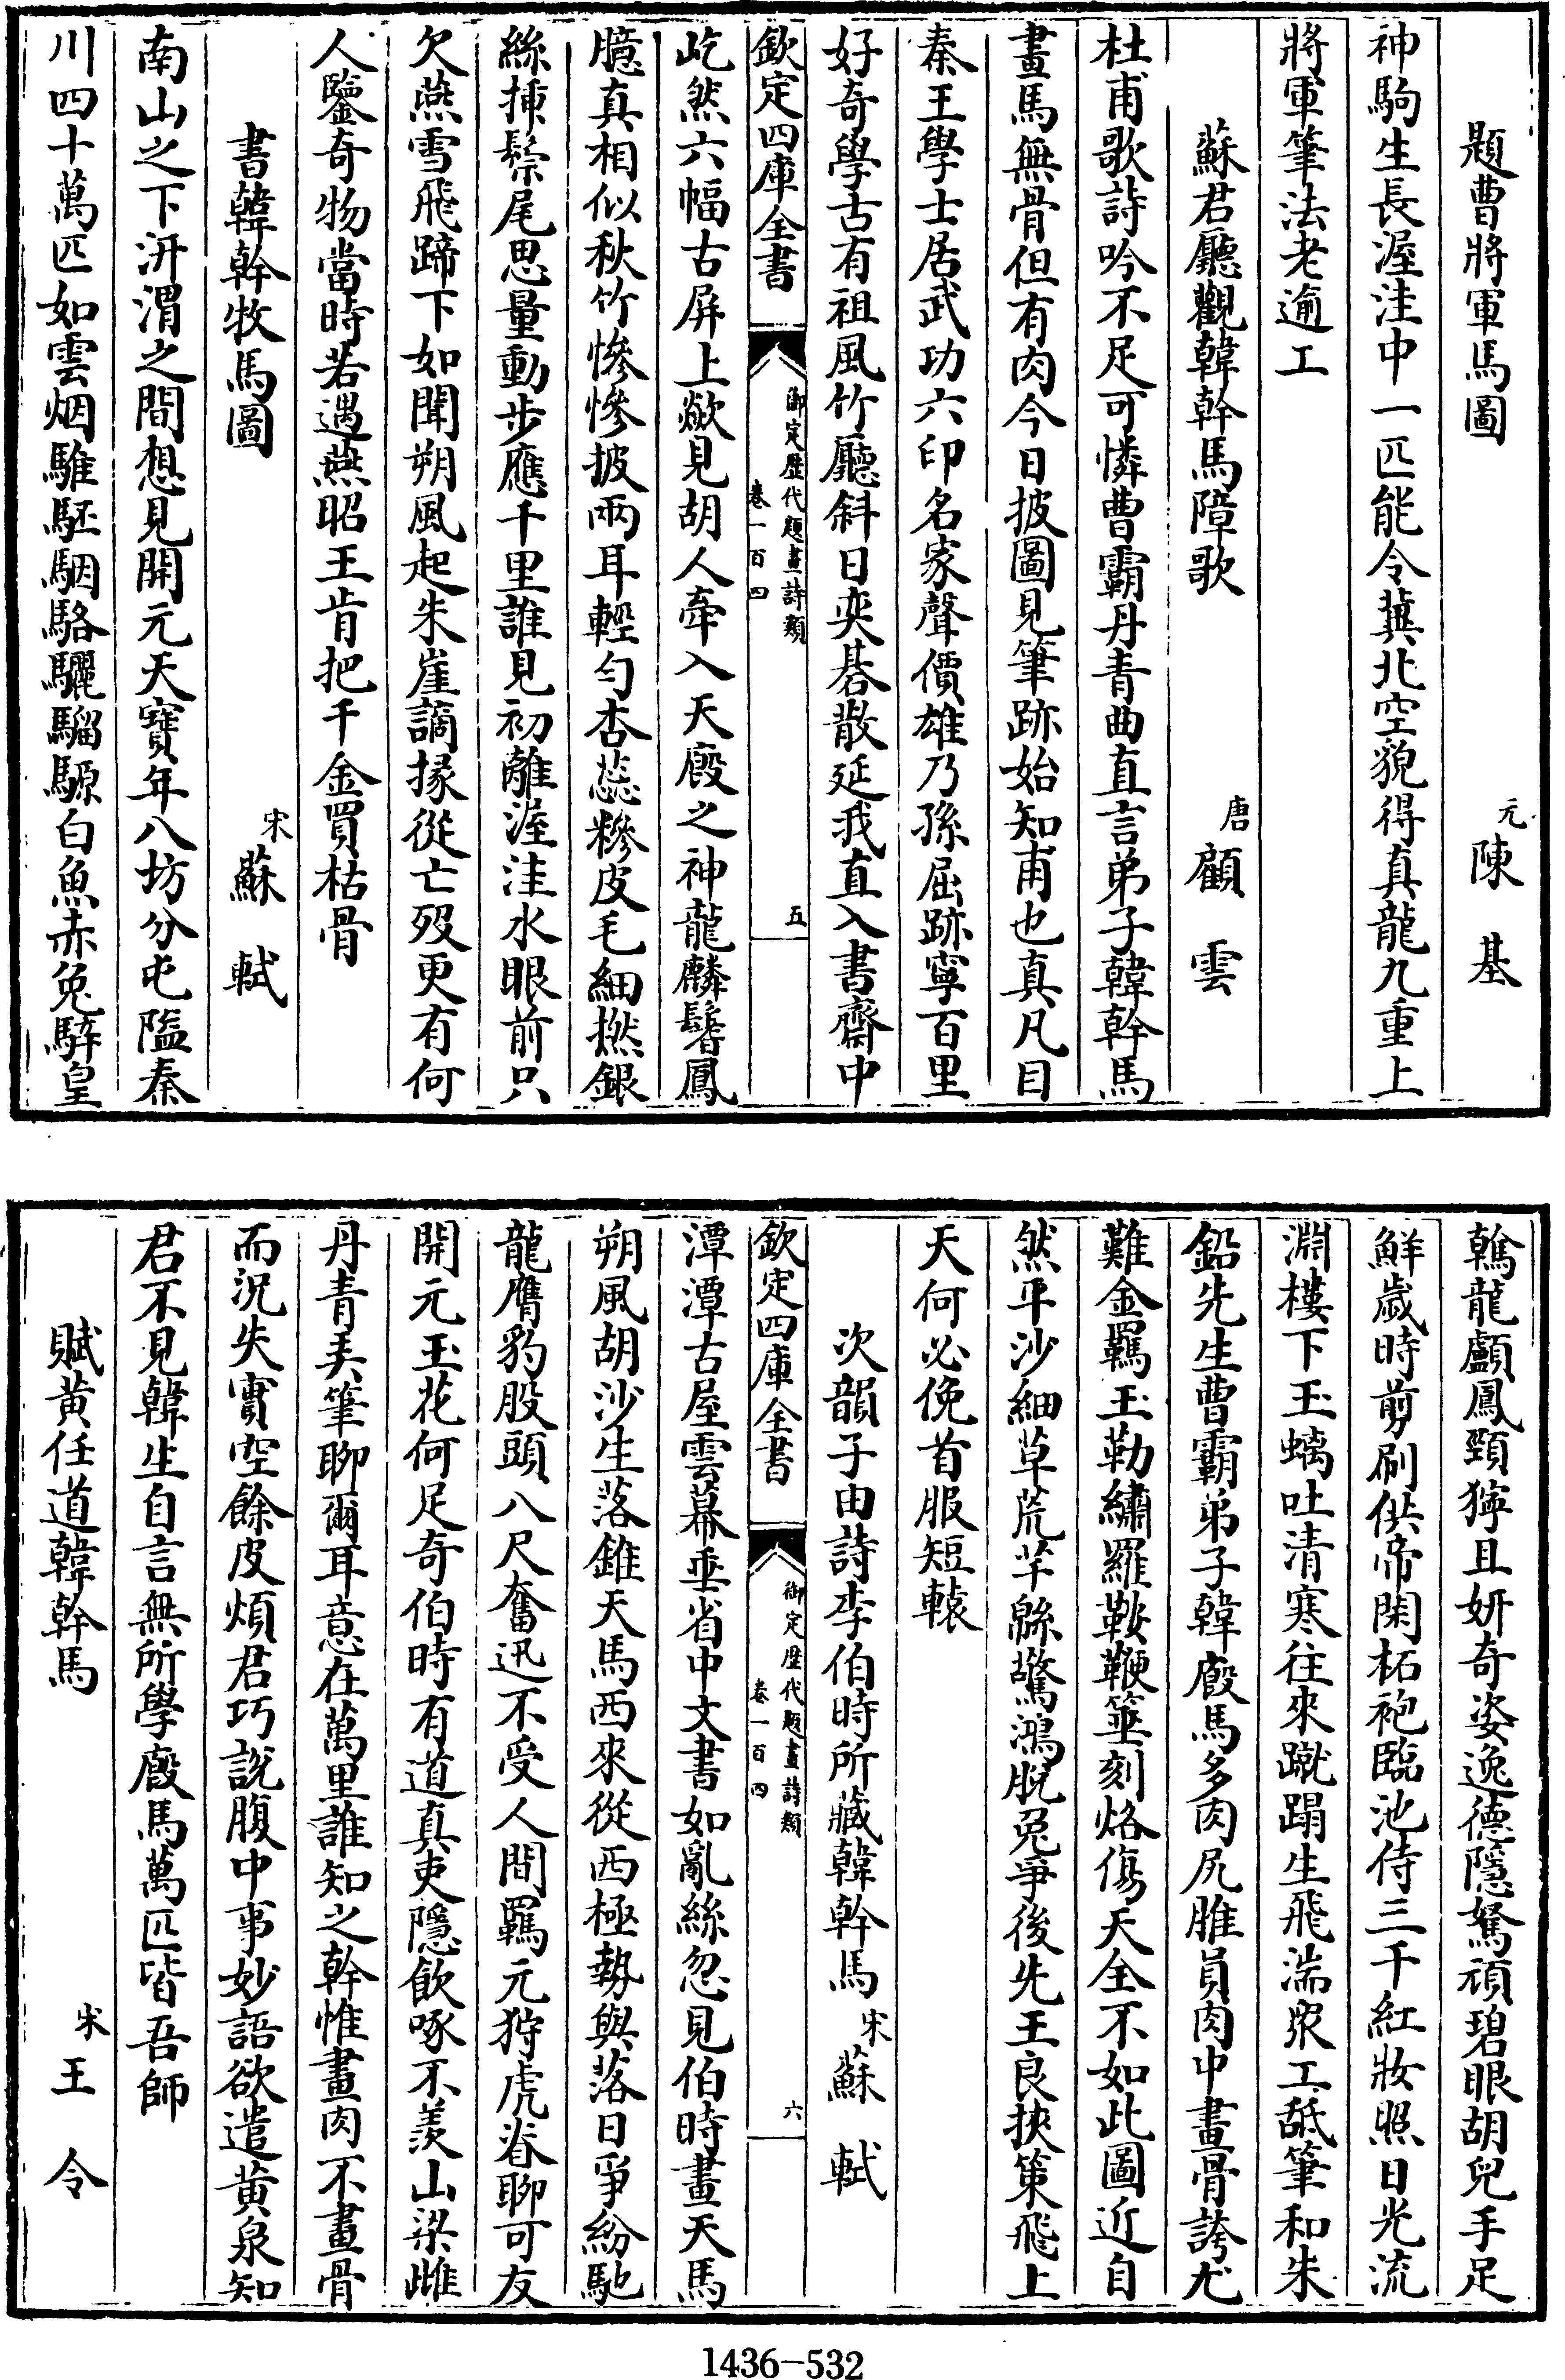 題曹將軍馬圖 元 陳基
神駒生長渥洼中一匹能令冀北空貌得真龍九重上
將軍筆法老逾工
蘇君廳觀韓幹馬障歌 唐 顧雲
杜甫歌詩吟不足可憐曹霸丹青曲直言弟子韓幹馬
畫馬無骨但有肉今日披圖見筆跡始知甫也真凡目
秦王學士居武功六印名家聲價雄乃孫屈跡寧百里
好奇學古有祖風竹廳斜日奕碁散延我直入書齋中
欽定四庫全書 御定歷代題畫詩類 卷一百四 五
屹然六幅古屏上歘見胡人牽入天廄之神龍麟鬐鳳
臆真相似秋竹慘慘披兩耳輕勻杏蕊糝皮毛細撚銀
絲插鬃尾思量動步應千里誰見初離渥洼水眼前只
欠燕雪飛蹄下如聞朔風起朱崖謫掾從亡歿更有何
人鑒奇物當時若遇燕昭王肯把千金買枯骨
書韓幹牧馬圖 宋 蘇軾
南山之下汧渭之間想見開元天寶年八坊分屯隘秦
川四十萬匹如雲烟騅駓駰駱驪騮騵白魚赤兔騂皇
䮧龍顱鳳頸獰且妍奇姿逸德隱駑頑碧眼胡兒手足
鮮歲時剪刷供帝閑柘袍臨池侍三千紅妝照日光流
淵樓下玉螭吐清寒往來蹴蹋生飛湍衆工舐筆和朱
鉛先生曹霸弟子韓廄馬多肉尻脽員肉中畫骨誇尤
難金羈玉勒繡羅鞍鞭箠刻烙傷天全不如此圖近自
然平沙細草荒芊緜驚鴻脫兔爭後先王良挾策飛上
天何必俛首服短轅
次韻子由詩李伯時所藏韓幹馬 宋 蘇軾
欽定四庫全書 御定歷代題畫詩類 卷一百四 六
潭潭古屋雲幕垂省中文書如亂絲忽見伯時畫天馬
朔風胡沙生落錐天馬西來從西極勢與落日爭紛馳
龍膺豹股頭八尺奮迅不受人間羈元狩虎脊聊可友
開元玉花何足奇伯時有道真吏隱飲啄不羨山梁雌
丹青弄筆聊爾耳意在萬里誰知之幹惟畫肉不畫骨
而況失實空餘皮煩君巧說腹中事妙語欲遣黃泉知
君不見韓生自言無所學廄馬萬匹皆吾師
賦黃任道韓幹馬 宋 王令
1436-532